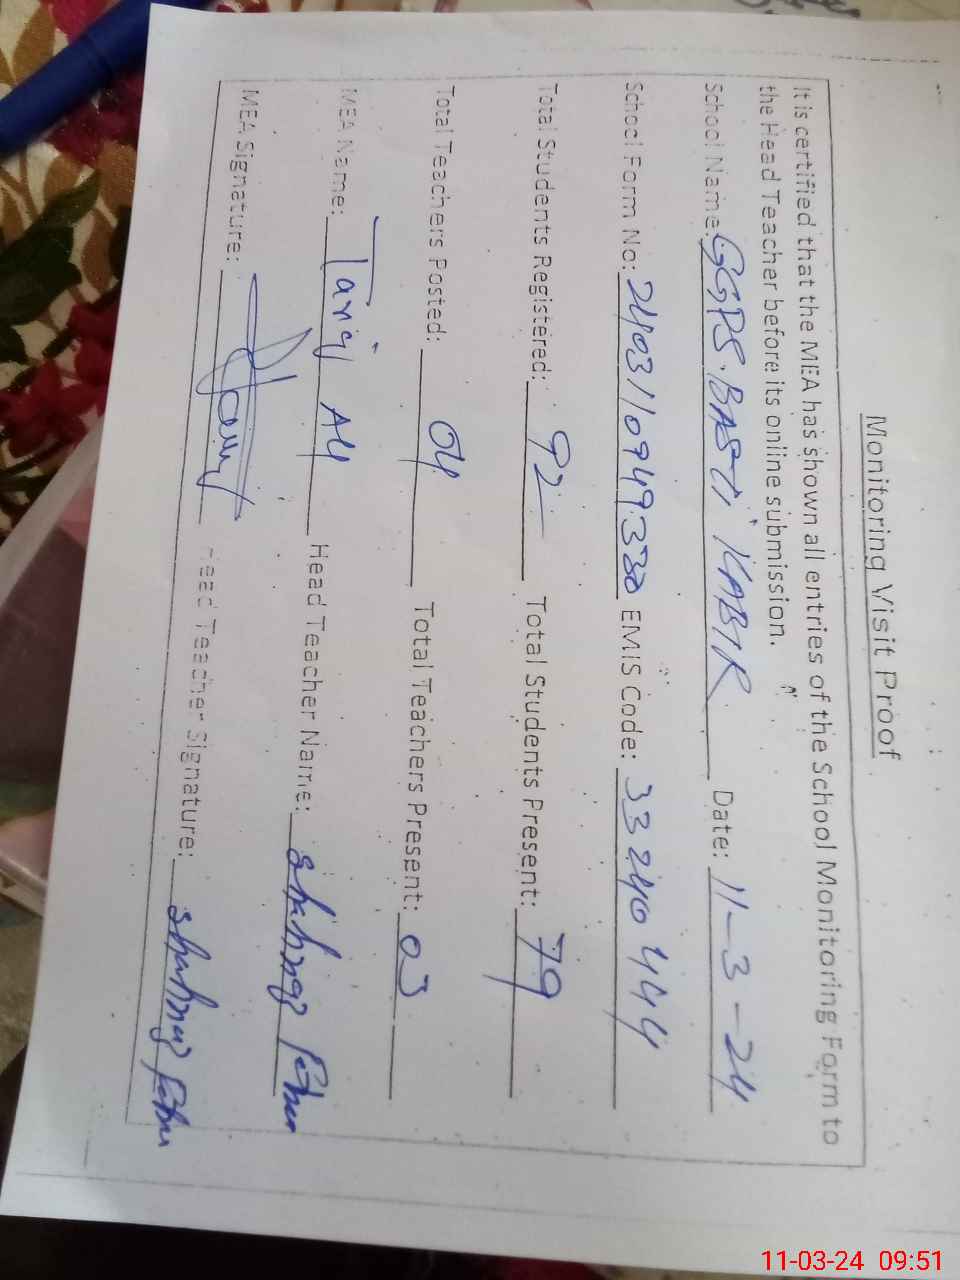 Monitoring Visit Proof
It is certified that the MEA has shown all entries of the School Monitoring Form to
the Head Teacher before its online submission.
School Name: GGPS. BASTI KABIR Date: 11-3-24
School Form No: 2403110949330 EMIS Code: 33240444
Total Students Registered: 92 Total Students Present: 79
Total Teachers Posted: 04 Total Teachers Present: 03
MEA Name: Tariq Ali Head Teacher Name: Shahnaz
MEA Signature: Head Teacher Signature: Shahnaz
11-03-24 09:51